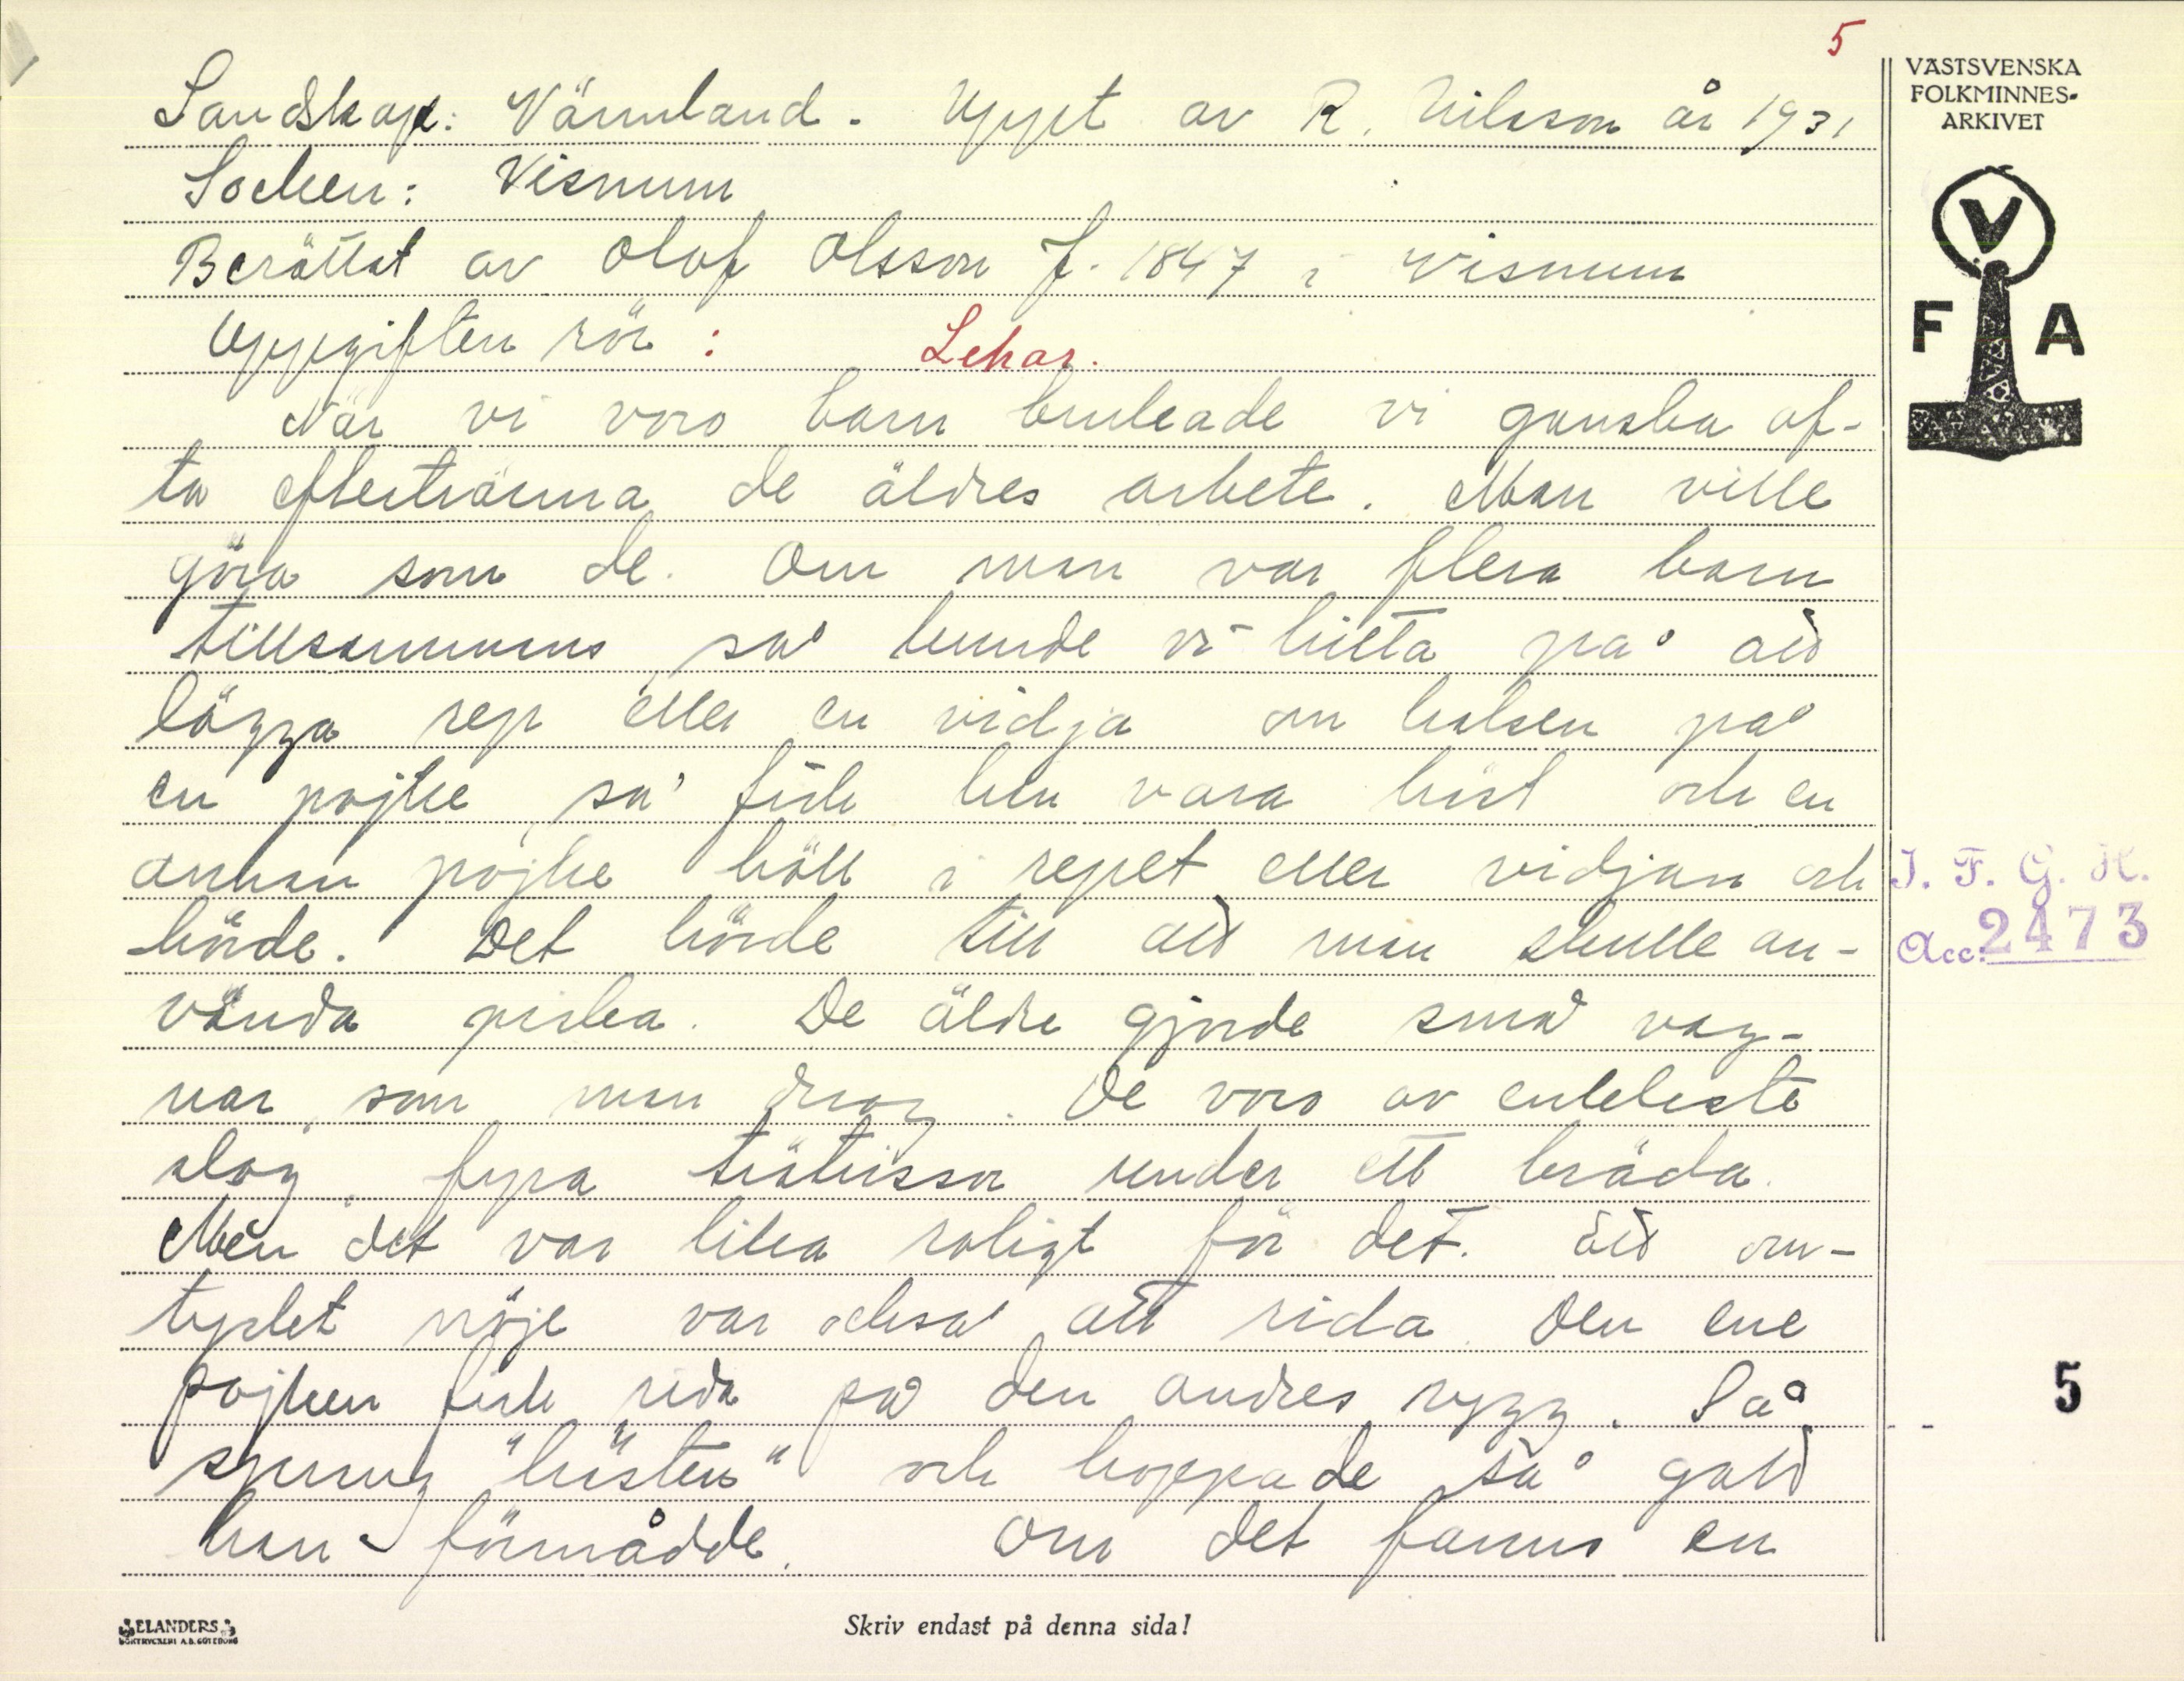 5
Landskap: Värmland. Uppt av R. Nilsson år 1931
Socken: Visnum
Berättat av Olof Olsson f. 1847 i Visnum
Uppgiften rör: Lekar.
När vi voro barn brukade vi ganska of-
ta efterhärma de äldres arbete. Man ville
göra som de. Om man var flera barn
tillsammans, så kunde vi hitta på att
lägga rep eller en vidja om halsen på
en pojke, så fick han vara häst och en
annan pojke höll i repet eller vidjan och
körde. Det hörde till att man skulle an-
vända piska. De äldre gjorde små vag-
nar, som man drog. De voro av enklaste
slag, fyra trätrissor under ett bräda.
Men det var lika roligt för det. Ått om-
tyckt nöje var också att rida. Den ene
pojken fick rida på den andres rygg. Så
sprang "hästen" och hoppade så gott
han förmådde. Om det fanns en
VÄSTSVENSKA
FOLKMINNES-
ARKIVET
V
F A
I. F. G. H.
Acc. 2473
5
ELANDERS
BOKTRYCKERI A.B. GÖTEBORG
Skriv endast på denna sida!